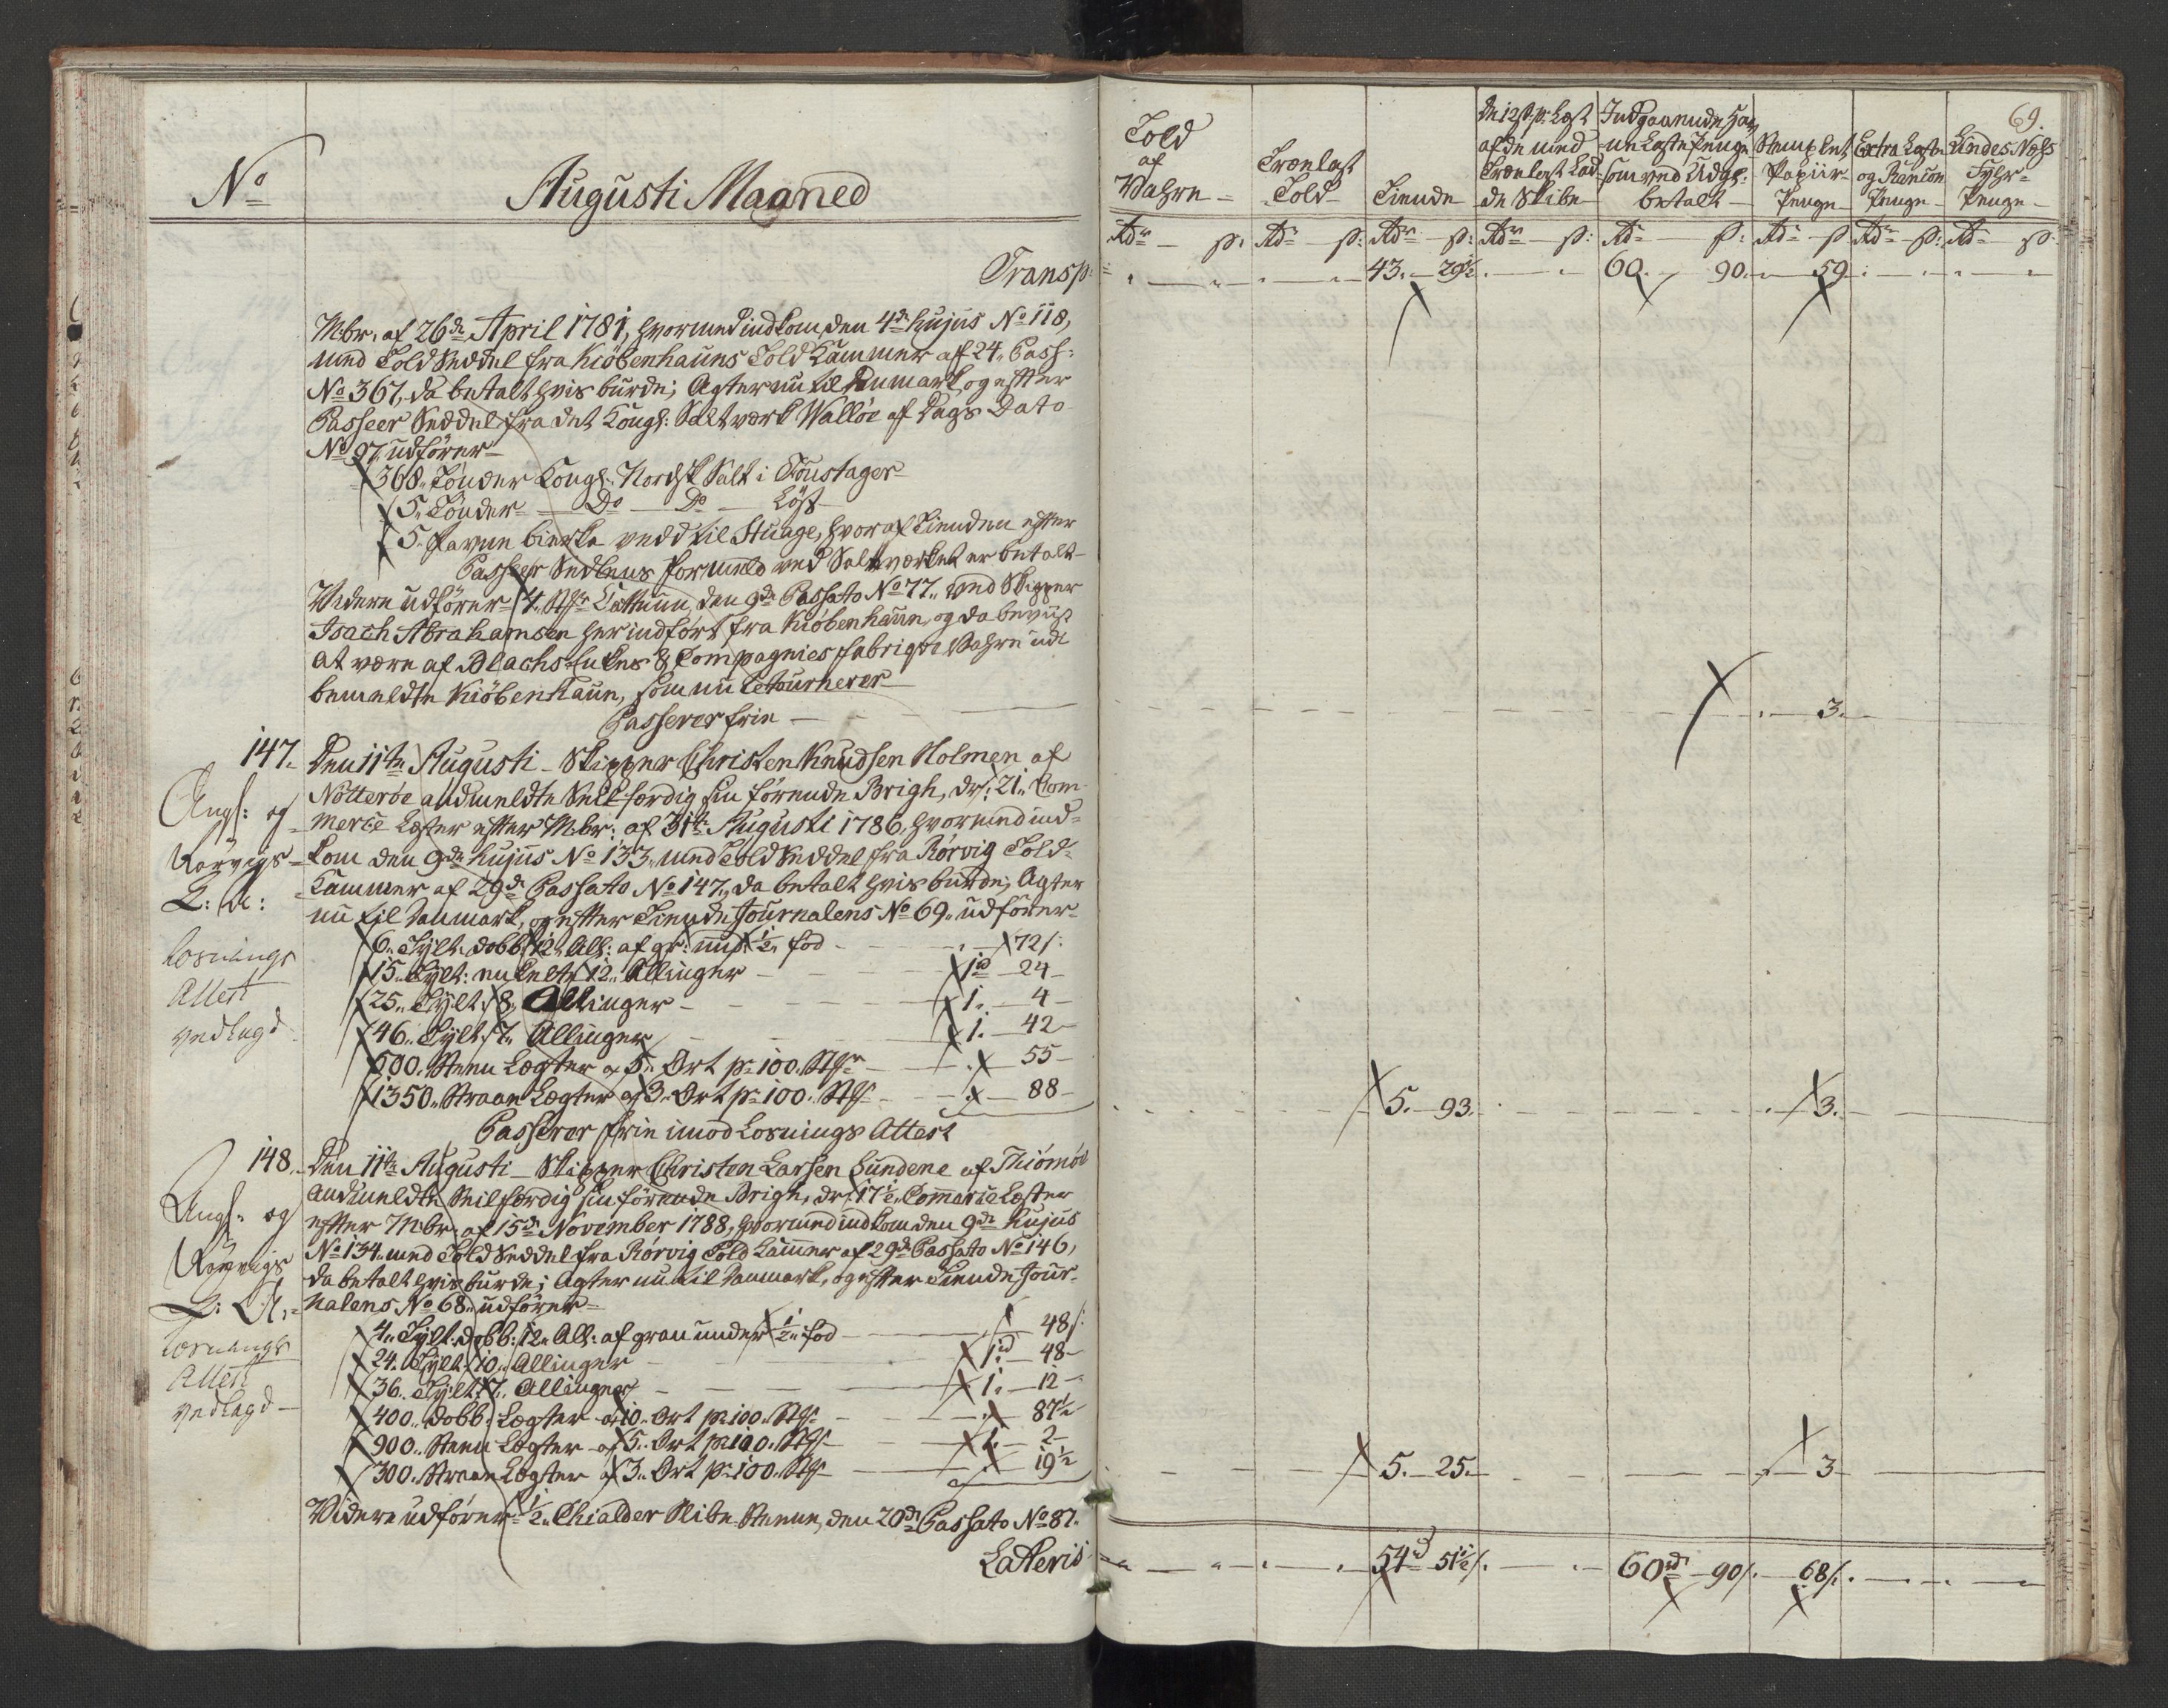 No
Augusti Maaned
Transp:
Mbr. af 26de April 1781, hvormed indkom den 4de hujus No 118,
med Told Seddel fra Kiöbenhauns Told Kammer af 24. Pass:
No 367, da betalt hvis burde; Agter nu til Danmark, og efter
Passeer Seddel fra det Kongl: Saltværk Walløe af Dags Dato
No 97. udfører
368. Tønder Kongl. Norsk Salt i Foustager
5. Tønder Do Do Løst
5. Favne birke vedd til Stuage, hvoraf Tienden efter
Passeer Sedlens formeld ved Saltværket er betalt
Videre udfører 4. Stkr Cattuun, den 9de Passato No 77. med Skipper
Isach Abrahamsen her indført fra Kiöbenhaun, og da beviist
at være af Compagnies fabrique Vahre udi
bemeldte Kiöbenhaun, som nu retournerer
Passerer frie
147. Den 11te Augusti Skipper Christen Knudsen Holmen af
Nøtterøe andmeldte Seilfærdig sin førende Brigh, dr: 21. Com-
mercie Læster efter Mbr: af 31te Augusti 1786, hvormed ind-
kom den 9de hujus No 133. med Told Seddel fra Rørvig Told-
Kammer af 29de Passato No 147, da betalt hvis burde; Agter
nu til Danmark, og efter Tiende Journalens No 69. udfører
Angl: og
Rørvigs
Losnings
Attest
vedlagd
6. Tylt: dobb: 12. All: af gr: und: 1/2 fod 72 s:
15. Tylt: enkelte 12. Allinger 1d 24
25. Tylt: 8. Allinger 1. 4
46. Tylt: 7. Allinger 1. 42
500. Steen Lægter a 5. Ort pr 100. Stkr 55
1350. Straae Lægter af 3. Ort pr 100. Stkr 88
Passerer frie imod Losnings Attest
148. Den 11te Augusti Skipper Christen Larsen Sundene af Thiømøe
andmeldte Seilfærdig sin førende Brigh, dr: 17 1/2. Commercie Læster
efter Mbr. af 15de November 1788, hvormed indkom den 9de hujus
No 134. med Told Seddel fra Rørvig Told Kammer af 29de Passato No 146,
da betalt hvis burde; Agter nu til Danmark, og efter Tiende Jour-
nalens No 68. udfører
Angl. og
Rørvigs
Losnings
Attest
vedlagd
4. Tylt: dobb: 12. All: af gran under 1/2. fod 48 s:
24. Tylt 10. Allinger 1d 48
36. Tylt 7. Allinger 1. 12
400. dobb: Lægter a 10. Ort pr 100. Stkr 87 1/2
900. Steen Lægter af 5. Ort pr 100. Stkr 1. 2
300. Straae Lægter af 3. Ort pr 100. Stkr 19 1/2
Videre udfører 1/2. Chialder Slibe Steene, den 20de Passato No 87.
Lateris
69.
Told af Vahre
Trælast Told
Tiende
De 12 s. pr. Læst af de med Trælast Lad-de Skibe
Indgaaende Hav-ne Læste Penge som ved Udgl: betalt
Stemplet Papiir Penge
Extra Læste og Rancion Penge
Lindes Næss Fyhr Penge
Rdr s: Rdr s: Rdr s: Rdr s: Rdr s: Rdr s: Rdr s: Rdr s:
43. 29 1/2 60. 90. 59
3.
5. 93. 3.
5. 25. 3
54d 51 1/2 s. 60d 90 s. 68 s.